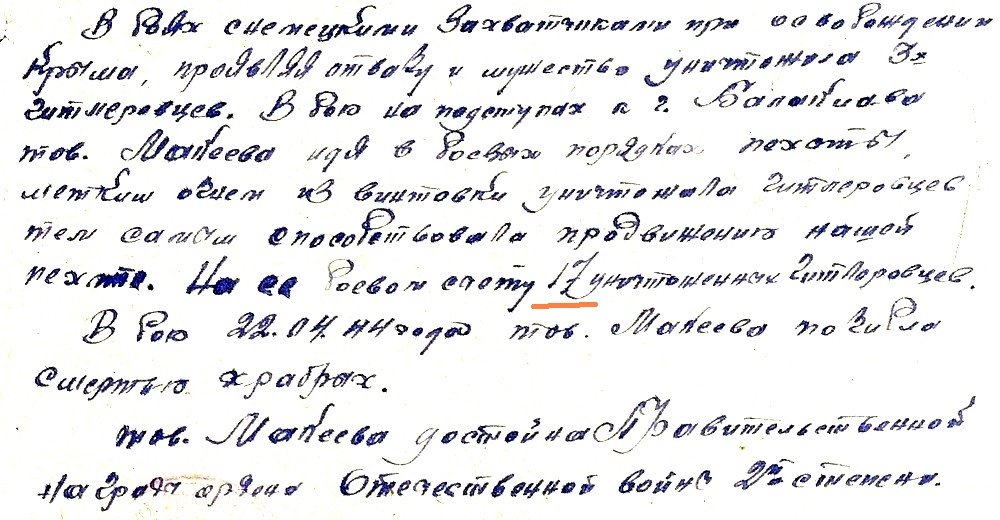 В боях с немецкими захватчиками при освобождении
Крыма, проявляя отвагу и мужество уничтожила 3х
гитлеровцев. В бою на подступах к г. Балаклава
тов. Макеева идя в боевых порядках пехоты,
метким огнем из винтовки уничтожала гитлеровцев
тем самым способствовала продвижению нашей
пехоте. На ее боевом счету 17 уничтоженных гитлеровцев.
В бою 22.04.44 года тов. Макеева погибла
смертью храбрых.
тов. Макеева достойна Правительственной
награды ордена Отечественной войны 2й степени.